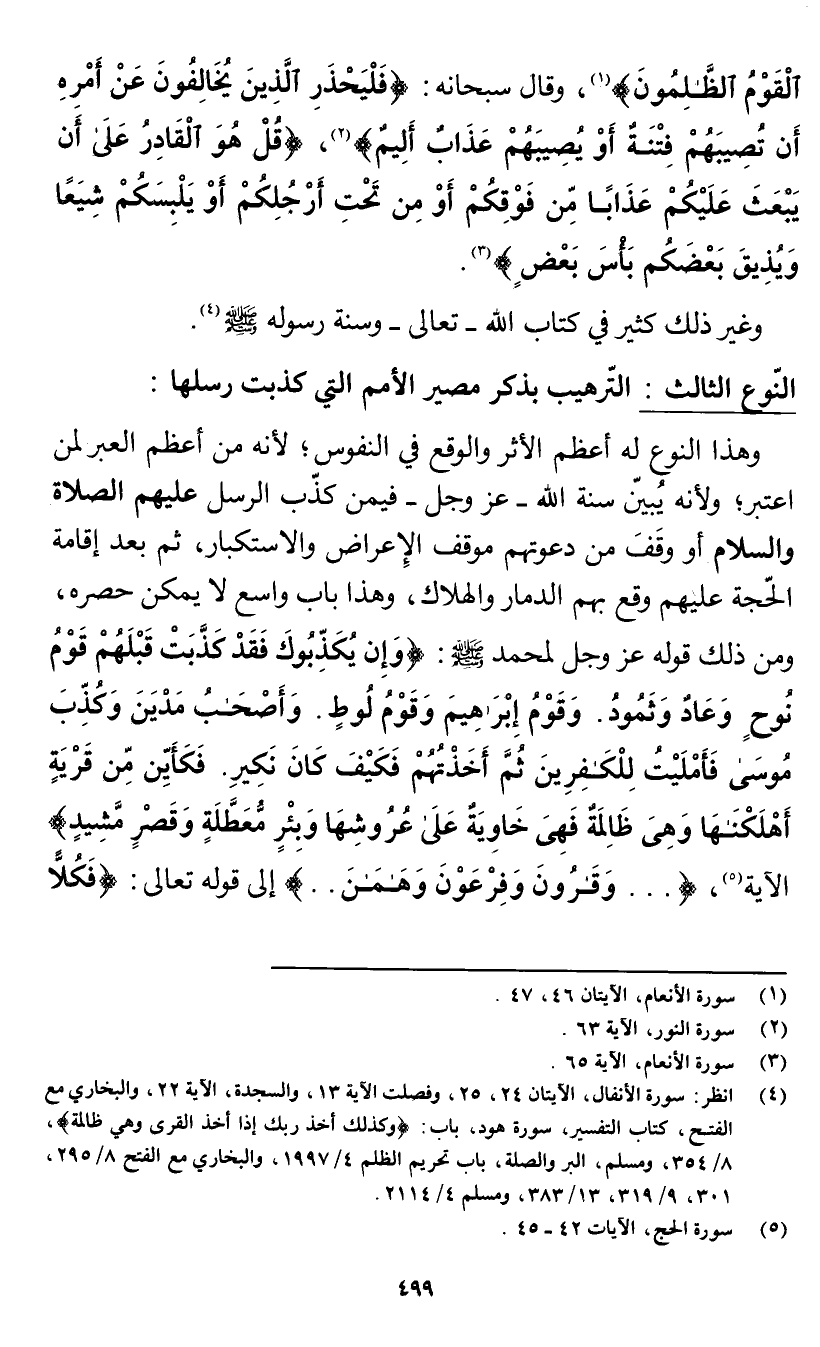 ٱلْقَوْمُ ٱلظَّـٰلِمُونَ﴾(١)، وقال سبحانه: ﴿فَلْيَحْذَرِ ٱلَّذِينَ يُخَالِفُونَ عَنْ أَمْرِهِ
أَن تُصِيبَهُمْ فِتْنَةٌ أَوْ يُصِيبَهُمْ عَذَابٌ أَلِيمٌ﴾(٢)، ﴿قُلْ هُوَ ٱلْقَادِرُ عَلَىٰ أَن
يَبْعَثَ عَلَيْكُمْ عَذَابًا مِّن فَوْقِكُمْ أَوْ مِن تَحْتِ أَرْجُلِكُمْ أَوْ يَلْبِسَكُمْ شِيَعًا
وَيُذِيقَ بَعْضَكُم بَأْسَ بَعْضٍ﴾(٣).
وغير ذلك كثير في كتاب الله ـ تعالى ـ وسنة رسوله ﷺ(٤).
النّوع الثالث : التّرهيب بذكر مصير الأمم التي كذبت رسلها :
وهذا النوع له أعظم الأثر والوقع في النفوس؛ لأنه من أعظم العبر لمن
اعتبر؛ ولأنه يُبينّ سنة الله ـ عز وجل ـ فيمن كذّب الرسل عليهم الصلاة
والسلام أو وقَفَ من دعوتهم موقف الإِعراض والاستكبار، ثم بعد إقامة
الحّجة عليهم وقع بهم الدمار والهلاك، وهذا باب واسع لا يمكن حصره،
ومن ذلك قوله عز وجل لمحمد ﷺ: ﴿وَإِن يُكَذِّبُوكَ فَقَدْ كَذَّبَتْ قَبْلَهُمْ قَوْمُ
نُوحٍ وَعَادٌ وَثَمُودُ. وَقَوْمُ إِبْرَٰهِيمَ وَقَوْمُ لُوطٍ. وَأَصْحَـٰبُ مَدْيَنَ وَكُذِّبَ
مُوسَىٰ فَأَمْلَيْتُ لِلْكَـٰفِرِينَ ثُمَّ أَخَذْتُهُمْ فَكَيْفَ كَانَ نَكِيرِ. فَكَأَيِّن مِّن قَرْيَةٍ
أَهْلَكْنَـٰهَا وَهِىَ ظَالِمَةٌ فَهِىَ خَاوِيَةٌ عَلَىٰ عُرُوشِهَا وَبِئْرٍ مُّعَطَّلَةٍ وَقَصْرٍ مَّشِيدٍ﴾
الآية(٥)، ﴿... وَقَـٰرُونَ وَفِرْعَوْنَ وَهَـٰمَـٰنَ..﴾ إلى قوله تعالى: ﴿فَكُلًّا
(١) سورة الأنعام، الآيتان ٤٦، ٤٧.
(٢) سورة النور، الآية ٦٣.
(٣) سورة الأنعام، الآية ٦٥.
(٤) انظر: سورة الأنفال، الآيتان ٢٤، ٢٥، وفصلت الآية ١٣، والسجدة، الآية ٢٢، والبخاري مع
الفتح، كتاب التفسير، سورة هود، باب: ﴿وكذلك أخذ ربك إذا أخذ القرى وهي ظالمة﴾،
٨/ ٣٥٤، ومسلم، البر والصلة، باب تحريم الظلم ٤/ ١٩٩٧، والبخاري مع الفتح ٨/ ٢٩٥،
٣٠١، ٩/ ٣١٩، ١٣/ ٣٨٣، ومسلم ٤/ ٢١١٤.
(٥) سورة الحج، الآيات ٤٢ ـ ٤٥.
٤٩٩